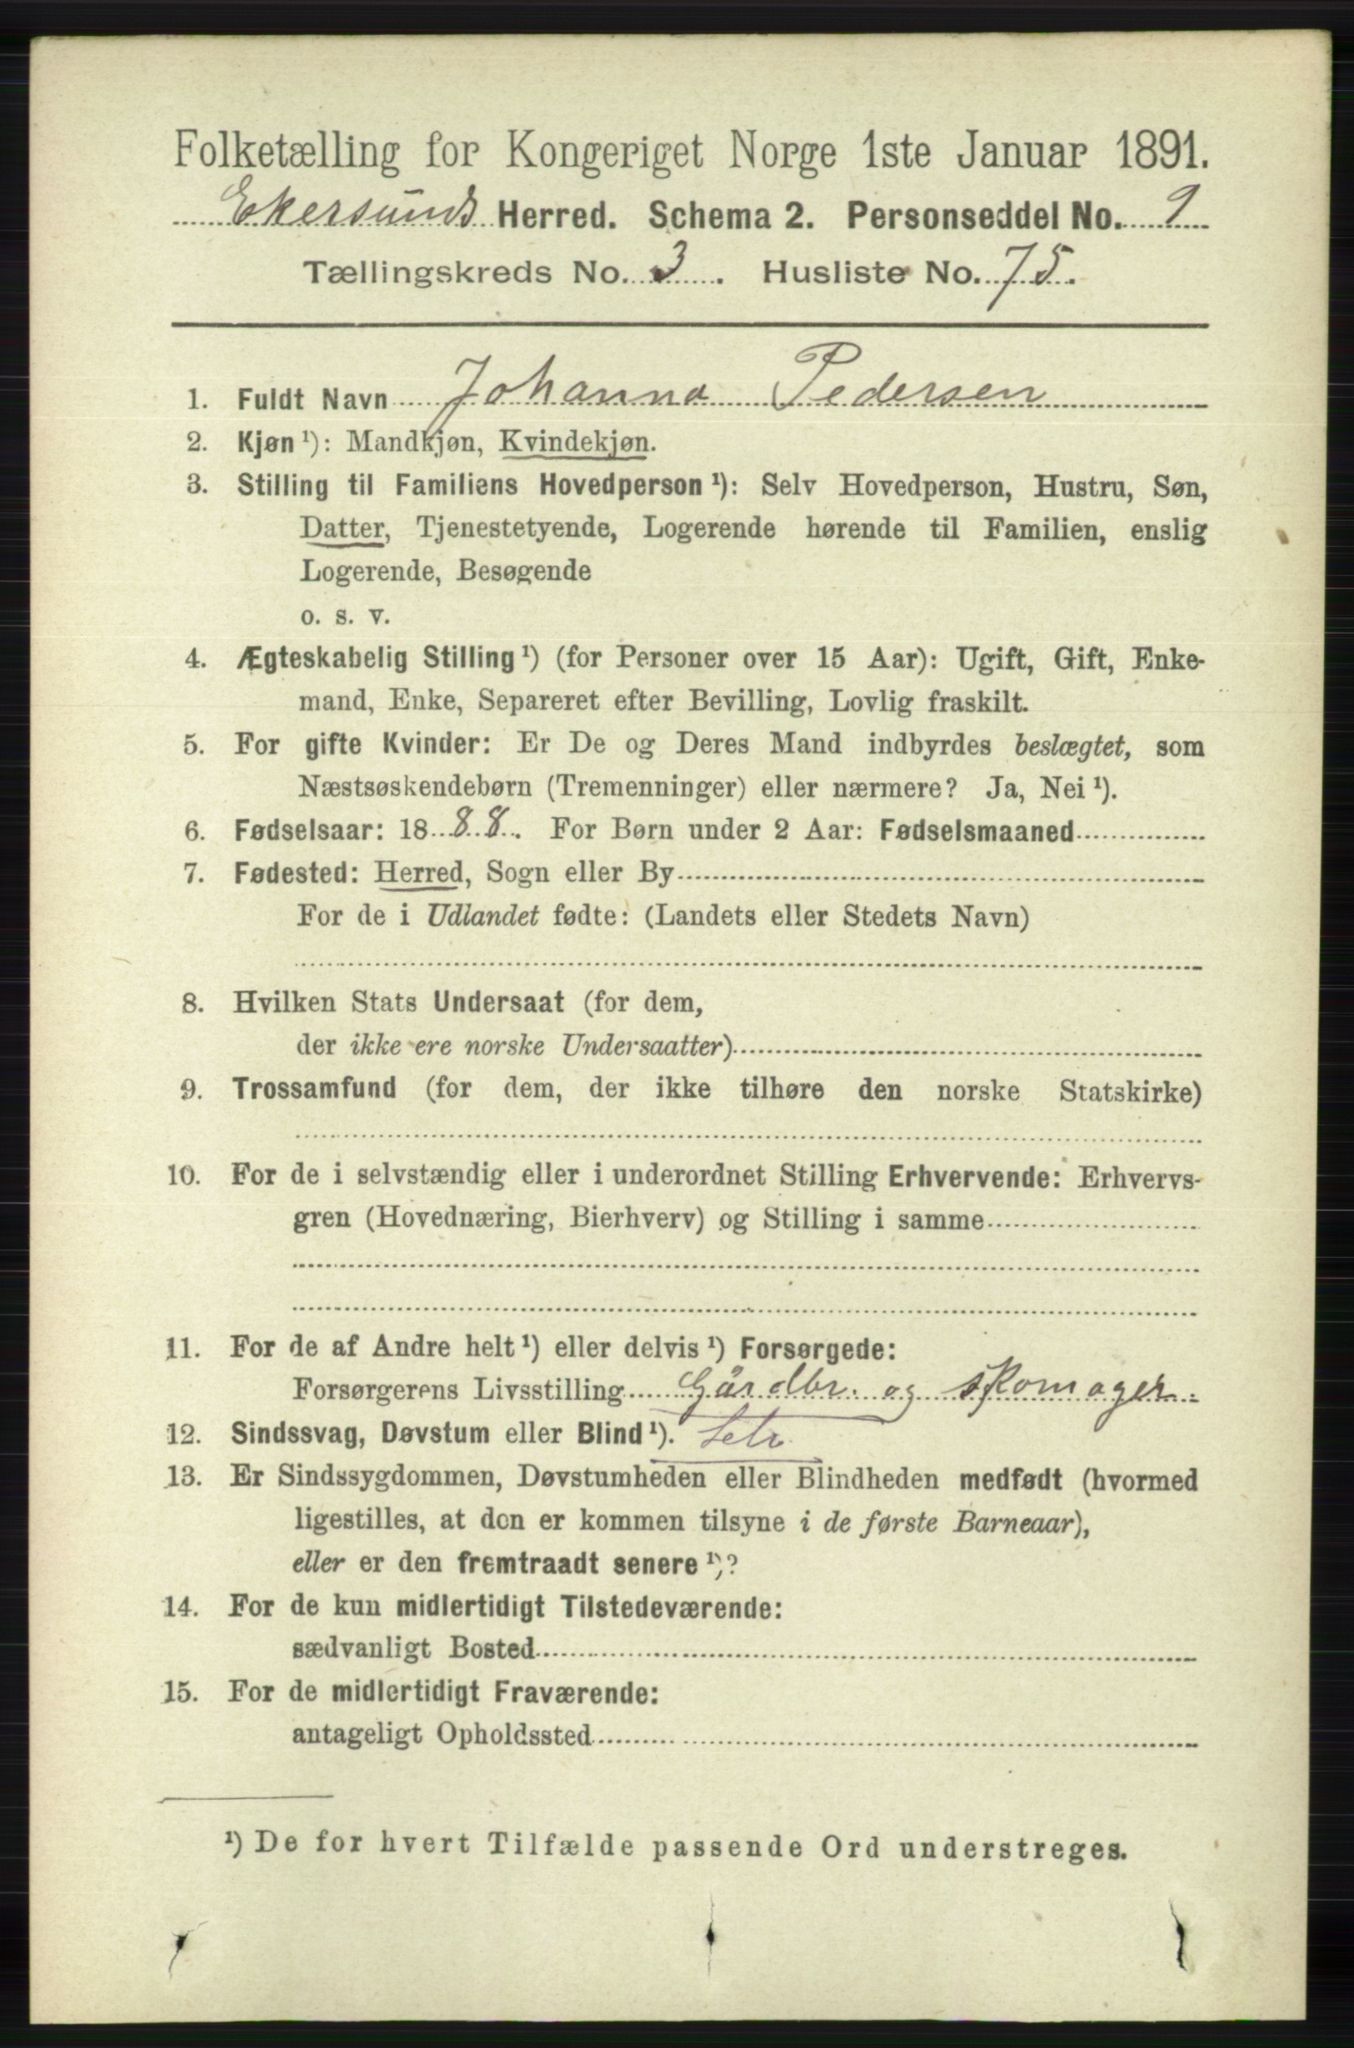 Folketælling for Kongeriget Norge 1ste Januar 1891.
Ekersunds Herred. Schema 2. Personseddel No. 9
Tællingskreds No. 3. Husliste No. 75.
1. Fuldt Navn Johanna Pedersen
2. Kjøn ¹): Mandkjøn, Kvindekjøn.
3. Stilling til Familiens Hovedperson ¹): Selv Hovedperson, Hustru, Søn,
Datter, Tjenestetyende, Logerende hørende til Familien, enslig
Logerende, Besøgende
o. s. v.
4. Ægteskabelig Stilling ¹) (for Personer over 15 Aar): Ugift, Gift, Enke-
mand, Enke, Separeret efter Bevilling, Lovlig fraskilt.
5. For gifte Kvinder: Er De og Deres Mand indbyrdes beslægtet, som
Næstsøskendebørn (Tremenninger) eller nærmere? Ja, Nei ¹).
6. Fødselsaar: 1888. For Børn under 2 Aar: Fødselsmaaned
7. Fødested: Herred, Sogn eller By
For de i Udlandet fødte: (Landets eller Stedets Navn)
8. Hvilken Stats Undersaat (for dem,
der ikke ere norske Undersaatter)
9. Trossamfund (for dem, der ikke tilhøre den norske Statskirke)
10. For de i selvstændig eller i underordnet Stilling Erhvervende: Erhvervs-
gren (Hovednæring, Bierhverv) og Stilling i samme
11. For de af Andre helt ¹) eller delvis ¹) Forsørgede:
Forsørgerens Livsstilling Gårdbr. og skomager.
12. Sindssvag, Døvstum eller Blind ¹).
13. Er Sindssygdommen, Døvstumheden eller Blindheden medfødt (hvormed
ligestilles, at den er kommen tilsyne i de første Barneaar),
eller er den fremtraadt senere ¹)?
14. For de kun midlertidigt Tilstedeværende:
sædvanligt Bosted
15. For de midlertidigt Fraværende:
antageligt Opholdssted
¹) De for hvert Tilfælde passende Ord understreges.